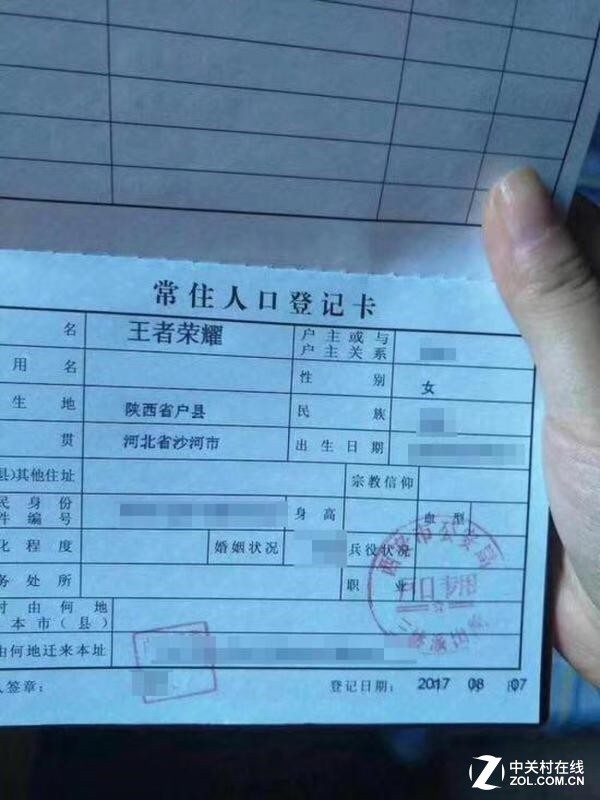 常住人口登记卡
名 王者荣耀 户主或与户主关系
用名 性别 女
生地 陕西省户县 民族
贯 河北省沙河市 出生日期
县)其他住址 宗教信仰
民身份件编号 身高 血型
化程度 婚姻状况 兵役状况
务处所 职业
时由何地本市(县)
由何地迁来本址
人签章: 登记日期: 2017 08 07
户口专用
中关村在线
ZOL.COM.CN